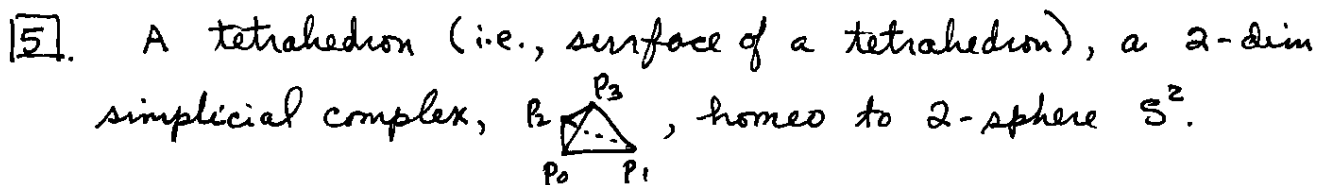 5. A tetrahedron (i.e., surface of a tetrahedron), a 2-dim
simplicial complex, P₂ P₃ P₀ P₁, homeo to 2-sphere S².